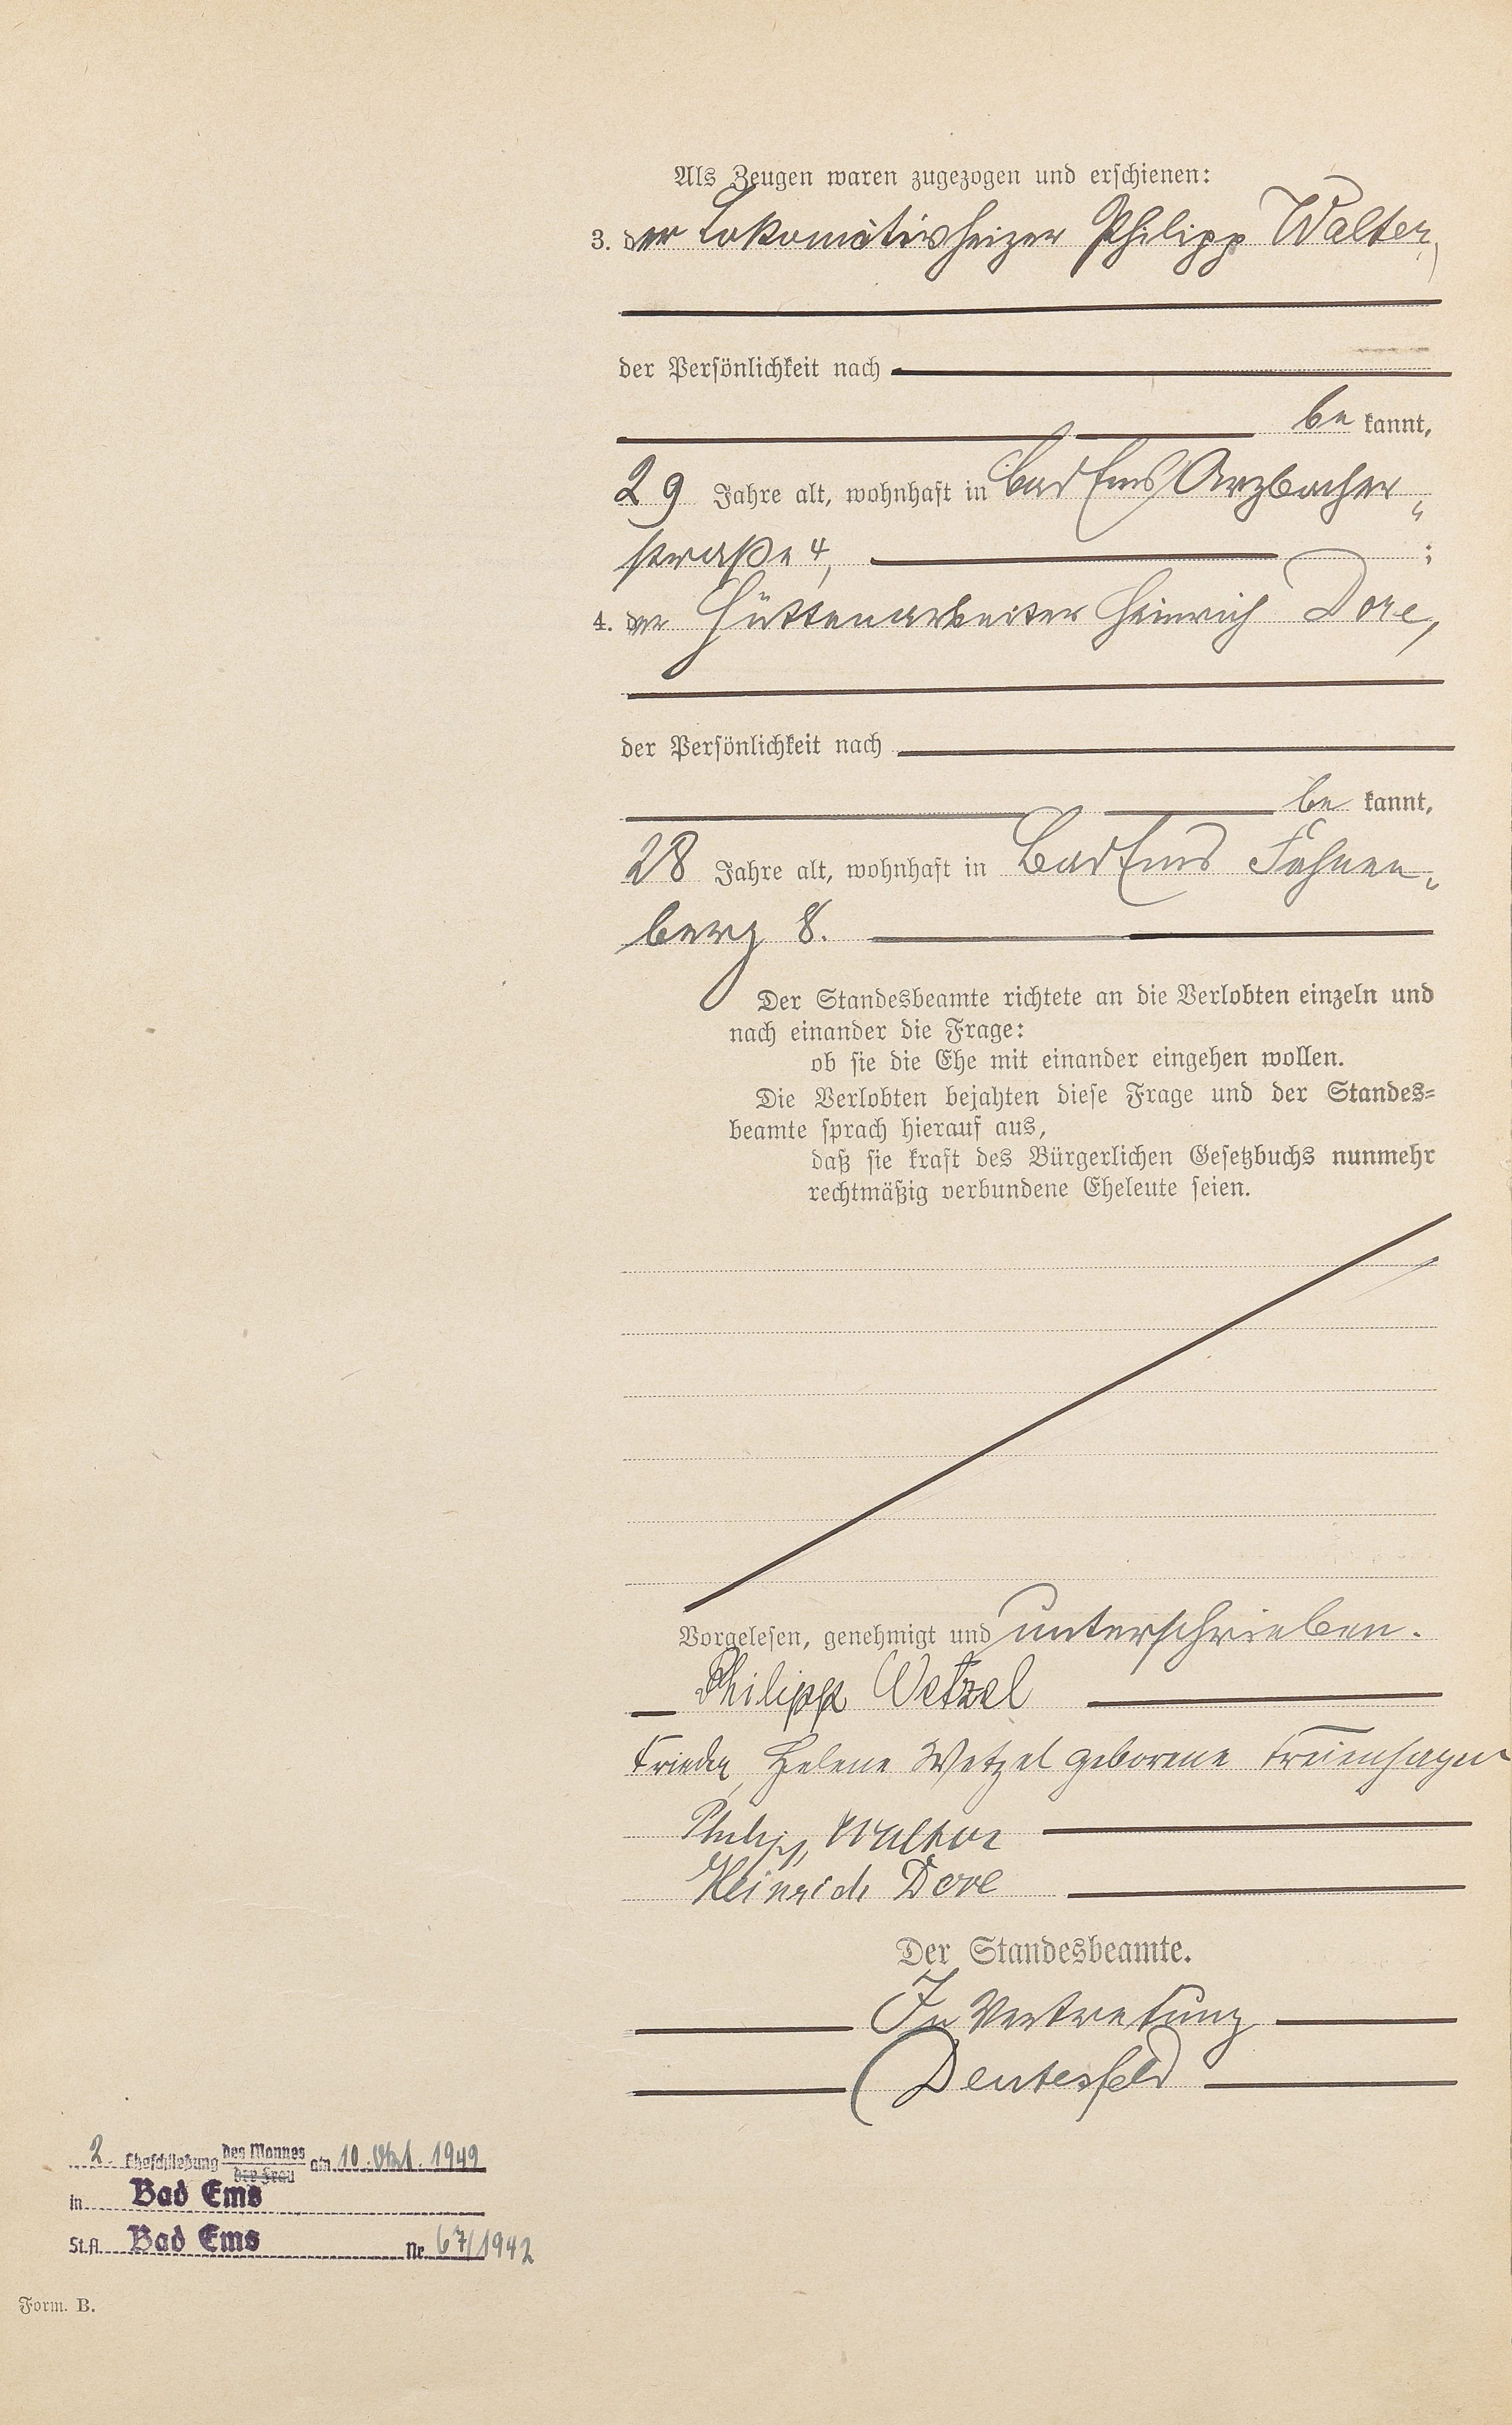 Als Zeugen waren zugezogen und erschienen:
3. der Lokomotivheizer Philipp Walter,
der Persönlichkeit nach
be kannt,
29 Jahre alt, wohnhaft in Bad Ems Arzbacher-
straße 4, ;
4. der Hüttenarbeiter Heinrich Dore,
der Persönlichkeit nach
be kannt,
28 Jahre alt, wohnhaft in Bad Ems Fahnen-
berg 8.
Der Standesbeamte richtete an die Verlobten einzeln und
nach einander die Frage:
ob sie die Ehe mit einander eingehen wollen.
Die Verlobten bejahten diese Frage und der Standes=
beamte sprach hierauf aus,
daß sie kraft des Bürgerlichen Gesetzbuchs nunmehr
rechtmäßig verbundene Eheleute seien.
Vorgelesen, genehmigt und unterschrieben.
Philipp Wetzel
Helene Wetzel geborene
Philipp Walter
Heinrich Dore
Der Standesbeamte.
In Vertretung
Deutesfeld
2. Eheschließung des Mannes der Frau am 10. Okt. 1942
in Bad Ems
St.A. Bad Ems Nr. 67/1942
Form. B.